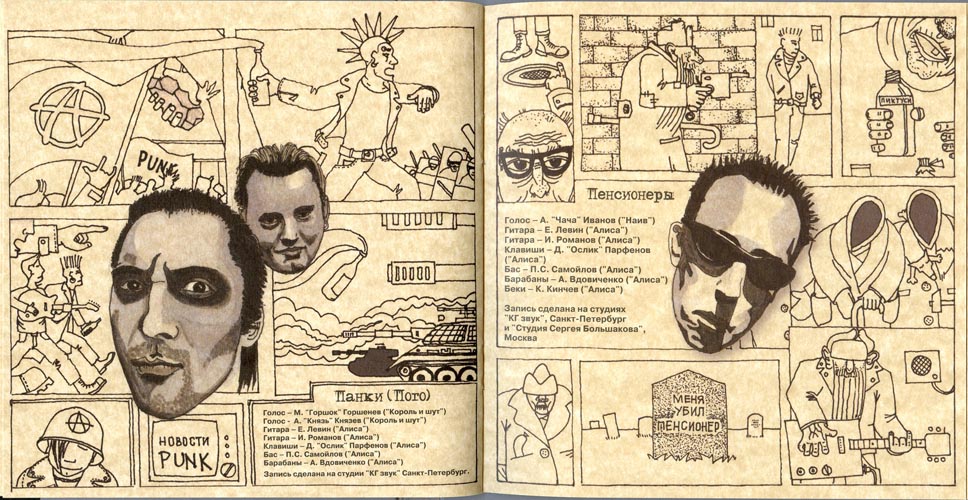 PUNK
НОВОСТИ
PUNK
Панки (Пого)
Голос – М. "Горшок" Горшенев ("Король и шут")
Голос - А. "Князь" Князев ("Король и шут")
Гитара – Е. Левин ("Алиса")
Гитара – И. Романов ("Алиса")
Клавиши – Д. "Ослик" Парфенов ("Алиса")
Бас – П.С. Самойлов ("Алиса")
Барабаны – А. Вдовиченко ("Алиса")
Запись сделана на студии "КГ звук" Санкт-Петербург.
ПИКТУСИ
Пенсионеры
Голос – А. "Чача" Иванов ("Наив")
Гитара – Е. Левин ("Алиса")
Гитара – И. Романов ("Алиса")
Клавиши – Д. "Ослик" Парфенов
("Алиса")
Бас – П.С. Самойлов ("Алиса")
Барабаны – А. Вдовиченко ("Алиса")
Беки – К. Кинчев ("Алиса")
Запись сделана на студиях
"КГ звук", Санкт-Петербург
и "Студия Сергея Большакова",
Москва
МЕНЯ
УБИЛ
ПЕНСИОНЕР